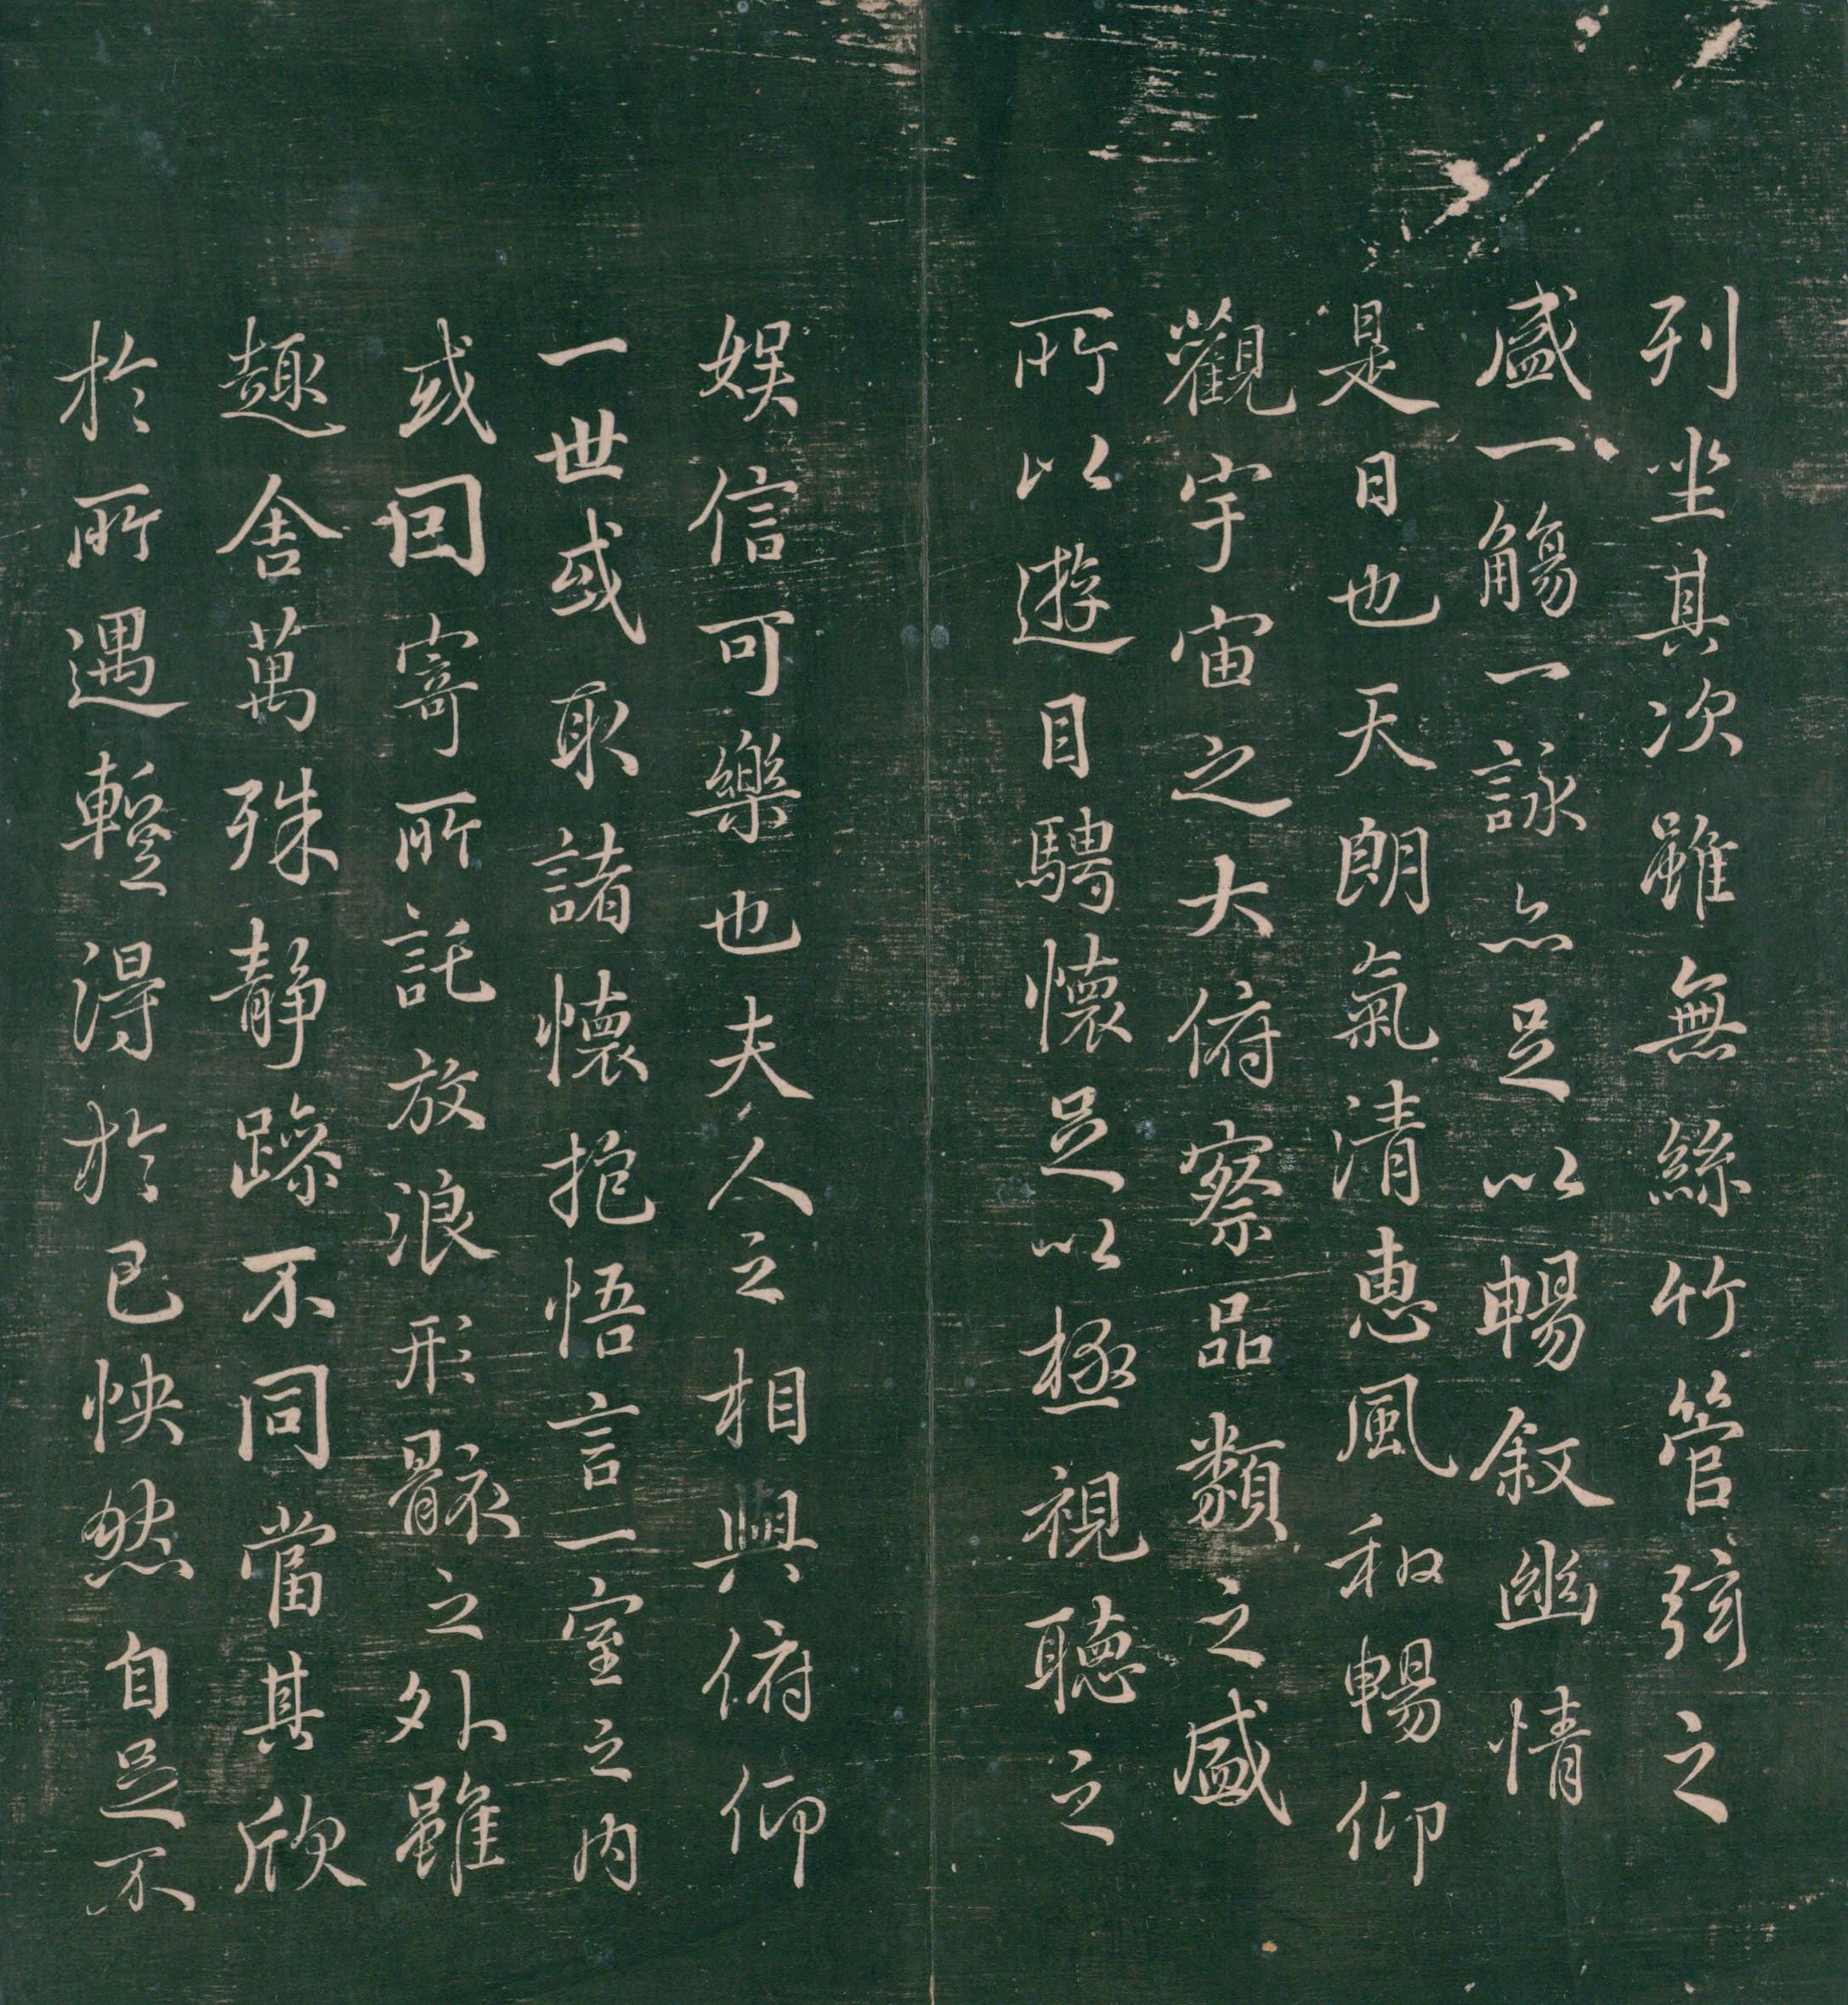 列坐其次雖無絲竹管弦之
盛一觴一詠亦足以暢叙幽情
是日也天朗氣清惠風和暢仰
觀宇宙之大俯察品類之盛
所以遊目騁懷足以極視聽之
娛信可樂也夫人之相與俯仰
一世或取諸懷抱悟言一室之內
或因寄所託放浪形骸之外雖
趣舍萬殊静躁不同當其欣
於所遇蹔得於己怏然自足不